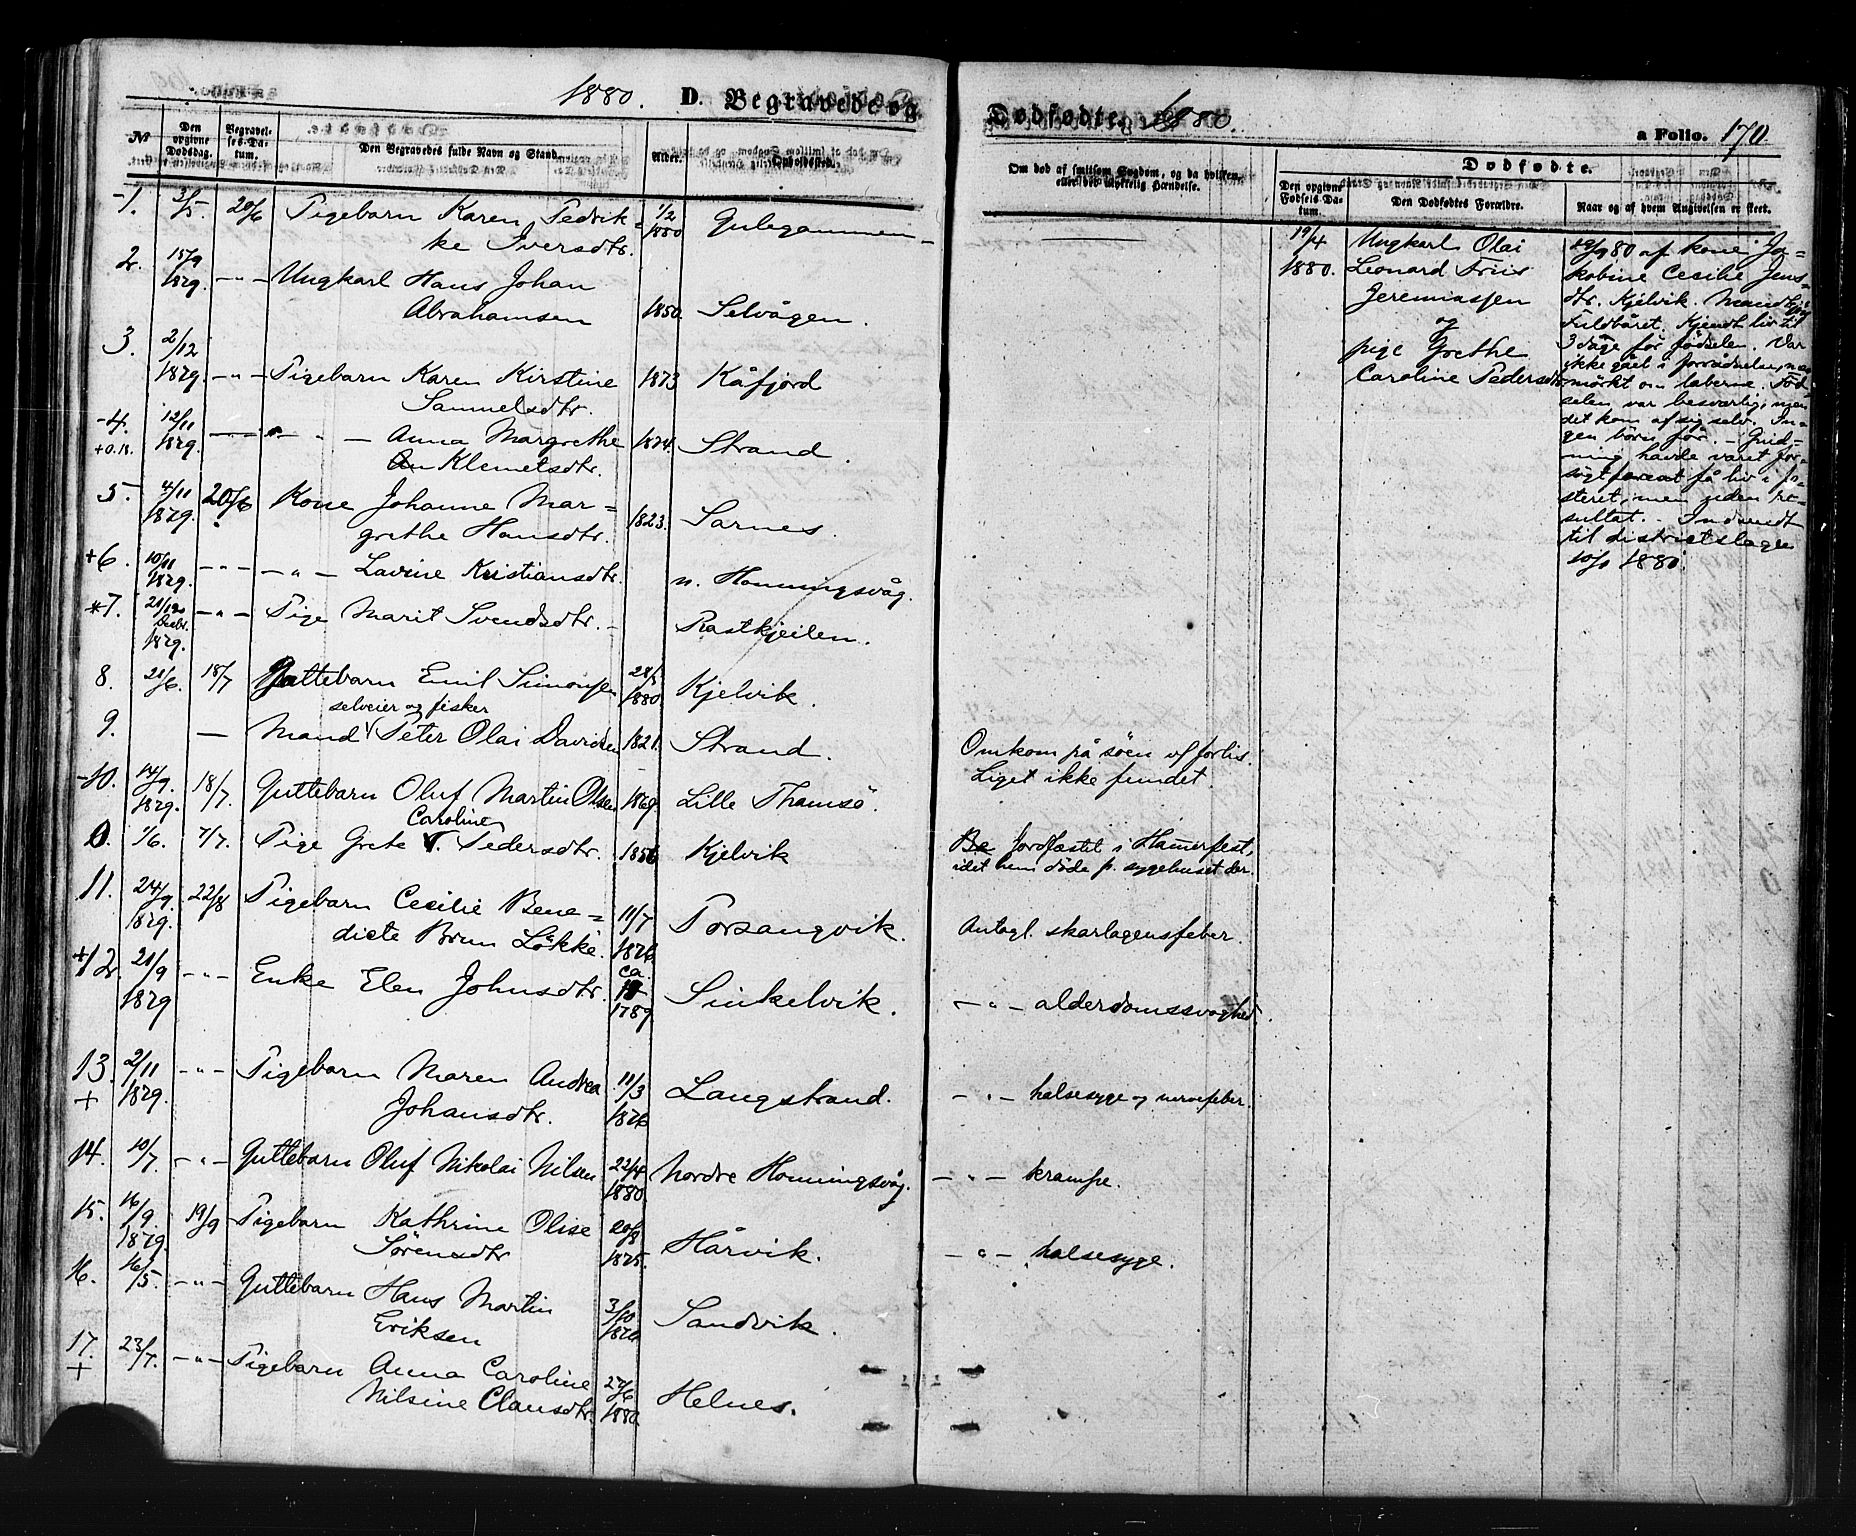 1880. D. Begravede og
Dødfødte. 1880.
a Folio. 170.
№ Den opgivne Dødsdag. Begravelses-Datum. Den Begravedes fulde Navn og Stand. Alder. Opholdssted.
Om død af smitsom Sygdom, og da hvilken, eller ved ulykkelig Hændelse.
Dødfødte.
Den opgivne Fødsels-Datum. Den Dødfødtes Forældre. Naar og af hvem Angivelsen er skeet.
1. 3/5. 20/6 Pigebarn Karen Fedrik= 1/2 1880 Gulegammen
ke Iversdtr.
2. 15/9 1879. -"- Ungkarl Hans Johan
Abrahamsen 1850. Selvågen.
3. 2/12 1879. -"- Pigebarn Karen Kirstine 1873 Kåfjord
Samuelsdtr.
-4. 12/11 1879. -"- -"- Anna Margrethe 1874. Strand.
Klemetsdtr.
5. 4/11 1879. 20/6 Kone Johanne Mar=
grethe Hansdtr. 1823. Sarnes.
+6. 10/11 1879. -"- -"- Lavine Kristiansdtr. n. Honningsvåg.
+7. Decbr. 1879. -"- Pige Marit Svendsdtr. - Rastkjeilen.
8. 21/6. 18/7 Guttebarn Emil Simonsen 28/5 1880. Kjelvik.
selveier og fisker
9. — Mand Peter Olai Davidsen 1821. Strand. Omkom på søen v/ forlis.
Liget ikke fundet.
-10. 14/9. 1879. 18/7. Guttebarn Oluf Martin Olsen 1869. Lille Thamsø.
Caroline
0. 1/6. 7/7. Pige Grete Pedersdtr. 1856 Kjelvik Jordfæstet i Hamerfest,
idet hun døde p. sygehuset der.
11. 24/9. 1879. 22/8 Pigebarn Cecilie Bene=
dicte Brun Løkke. 11/7 1876. Porsangvik. Antagl. skarlagensfeber.
+12. 21/9 1879 -"- Enke Elen Johnsdtr. ca. 1789 Sinkelvik. -"- alderdomssvaghed.
13. + 2/11 1879. -"- Pigebarn Maren Andrea 11/3 1876 Langstrand. -"- halsesyge og nervefeber.
Johansdtr.
14. 10/7. -"- Guttebarn Oluf Nikolai Nilsen 22/4 1880. Nordre Honningsvåg. -"- krampe.
15. 16/9. 1879. 19/9 Pigebarn Kathrine Olise 20/8 1875. Hårvik. -"- halsesyge.
Sørensdtr
16. 16/5. -"- Guttebarn Hans Martin
Eriksen 3/10 Sandvik.
17. + 23/7. -"- Pigebarn Anna Caroline
Nilsine Clausdtr. 27/6 1880. Helnes.
19/4 1880.
Ungkarl Olai
Leonard Friis
Jeremiassen
og
pige Grethe
Caroline Pedersdtr
80 af kone Ja=
kobine Cecilie Jens=
dtr. Kjelvik.
Fuldbåret. Kjendt liv til
3 dage før fødselen. Var
ikke gået i forrådnelse, men
mørkt om læberne. Fød=
selen var besværlig, men
det kom af sig selv. In=
gen børn før. - Gnid=
ning havde været for=
søgt få liv i fo=
steret, men uden re=
sultat. - Indsendt
til districtslægen
1880.